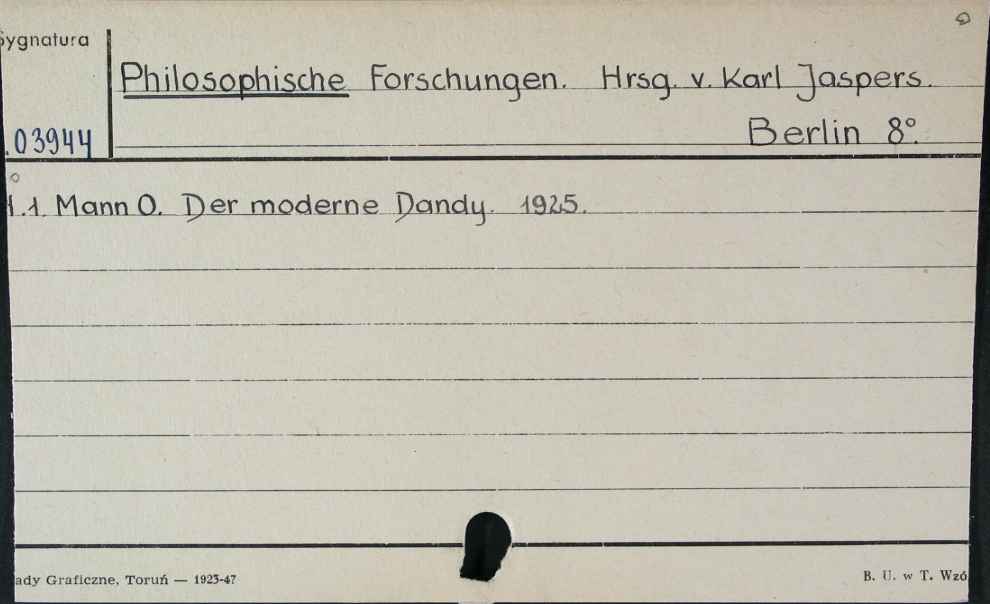 Sygnatura
Philosophische Forschungen. Hrsg. v. Karl Jaspers.
Berlin 8°.
.03944
1.1. Mann O. Der moderne Dandy. 1925.
ady Graficzne, Toruń — 1923-47
B. U. w T. Wzó